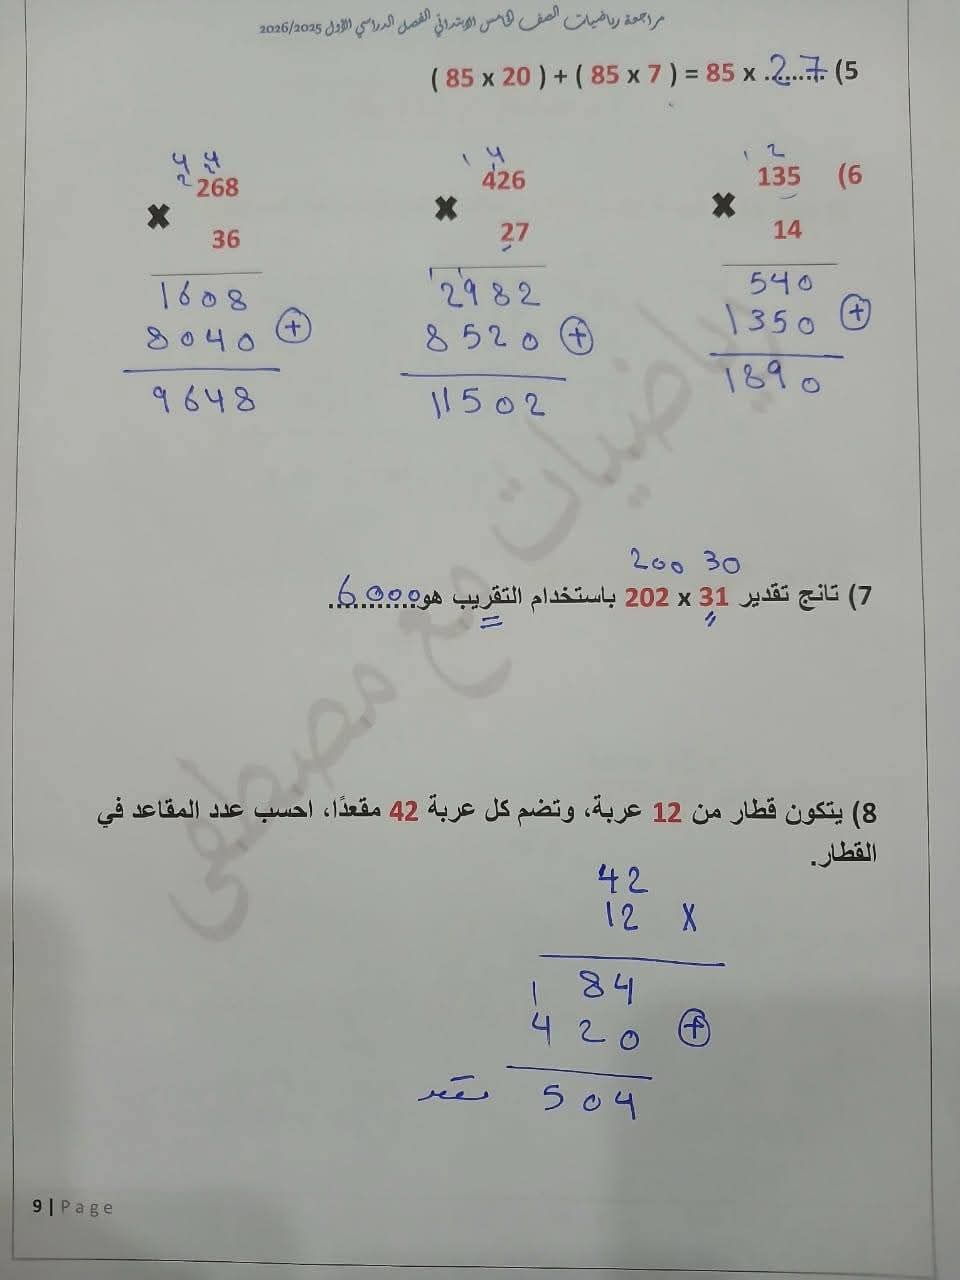 مراجعة رياضيات الصف الخامس الابتدائي الفصل الدراسي الأول 2026/2025
5) ( 85 x 20 ) + ( 85 x 7 ) = 85 x ........ 27
6)
1 2
135
×
14
540
1350 +
1890
1 4
426
×
27
1 1
2982
8520 +
11502
4 4
2 2
268
×
36
1608
8040 +
9648
200 30
7) تانج تقدير 31 x 202 باستخدام التقريب هو........... 6000
8) يتكون قطار من 12 عربة، وتضم كل عربة 42 مقعدًا، احسب عدد المقاعد في
القطار.
42
12 x
84
1
420 +
504 مقعد
رياضيات مع مصطفى
9 | Page